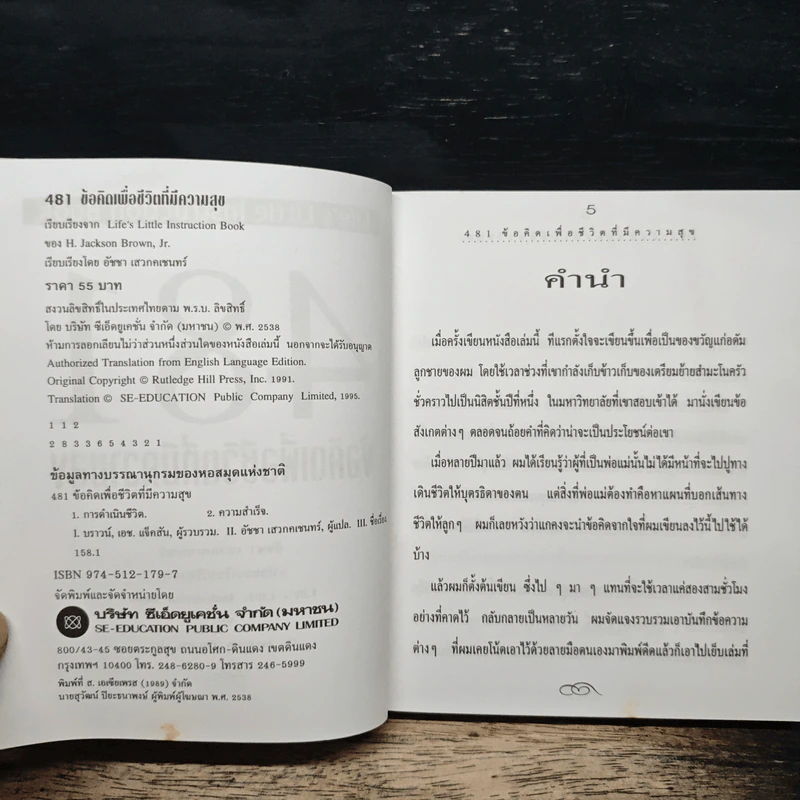 481 ข้อคิดเพื่อชีวิตที่มีความสุข
เรียบเรียงจาก Life's Little Instruction Book
ของ H. Jackson Brown, Jr.
เรียบเรียงโดย อัชชา เสวกคเชนทร์
ราคา 55 บาท
สงวนลิขสิทธิ์ในประเทศไทยตาม พ.ร.บ. ลิขสิทธิ์
โดย บริษัท ซีเอ็ดยูเคชั่น จำกัด (มหาชน) © พ.ศ. 2538
ห้ามการลอกเลียนไม่ว่าส่วนหนึ่งส่วนใดของหนังสือเล่มนี้ นอกจากจะได้รับอนุญาต
Authorized Translation from English Language Edition.
Original Copyright © Rutledge Hill Press, Inc. 1991.
Translation © SE-EDUCATION Public Company Limited, 1995.
1 1 2
2 8 3 3 6 5 4 3 2 1
ข้อมูลทางบรรณานุกรมของหอสมุดแห่งชาติ
481 ข้อคิดเพื่อชีวิตที่มีความสุข
1. การดำเนินชีวิต. 2. ความสำเร็จ.
I. บราวน์, เอช. แจ็คสัน, ผู้รวบรวม. II. อัชชา เสวกคเชนทร์, ผู้แปล. III. ชื่อเรื่อง
158.1
ISBN 974-512-179-7
จัดพิมพ์และจัดจำหน่ายโดย
บริษัท ซีเอ็ดยูเคชั่น จำกัด (มหาชน)
SE-EDUCATION PUBLIC COMPANY LIMITED
800/43-45 ซอยตระกูลสุข ถนนอโศก-ดินแดง เขตดินแดง
กรุงเทพฯ 10400 โทร. 248-6280-9 โทรสาร 246-5999
พิมพ์ที่ ส. เอเซียเพรส (1989) จำกัด
นายสุวัฒน์ ปิยะธนาพงษ์ ผู้พิมพ์ผู้โฆษณา พ.ศ. 2538
5
481 ข้อคิดเพื่อชีวิตที่มีความสุข
คำนำ
เมื่อครั้งเขียนหนังสือเล่มนี้ ทีแรกตั้งใจจะเขียนขึ้นเพื่อเป็นของขวัญแก่อดัม
ลูกชายของผม โดยใช้เวลาช่วงที่เขากำลังเก็บข้าวเก็บของเตรียมย้ายสำมะโนครัว
ชั่วคราวไปเป็นนิสิตชั้นปีที่หนึ่ง ในมหาวิทยาลัยที่เขาสอบเข้าได้ มานั่งเขียนข้อ
สังเกตต่างๆ ตลอดจนถ้อยคำที่คิดว่าน่าจะเป็นประโยชน์ต่อเขา
เมื่อหลายปีมาแล้ว ผมได้เรียนรู้ว่าผู้ที่เป็นพ่อแม่นั้นไม่ได้มีหน้าที่จะไปปูทาง
เดินชีวิตให้บุตรธิดาของตน แต่สิ่งที่พ่อแม่ต้องทำคือหาแผนที่บอกเส้นทาง
ชีวิตให้ลูกๆ ผมก็เลยหวังว่าแกคงจะนำข้อคิดจากใจที่ผมเขียนลงไว้นี้ไปใช้ได้
บ้าง
แล้วผมก็ตั้งต้นเขียน ซึ่งไป ๆ มา ๆ แทนที่จะใช้เวลาแค่สองสามชั่วโมง
อย่างที่คาดไว้ กลับกลายเป็นหลายวัน ผมจัดแจงรวบรวมเอาบันทึกข้อความ
ต่างๆ ที่ผมเคยโน้ตเอาไว้ด้วยลายมือตนเองมาพิมพ์ดีดแล้วก็เอาไปเย็บเล่มที่